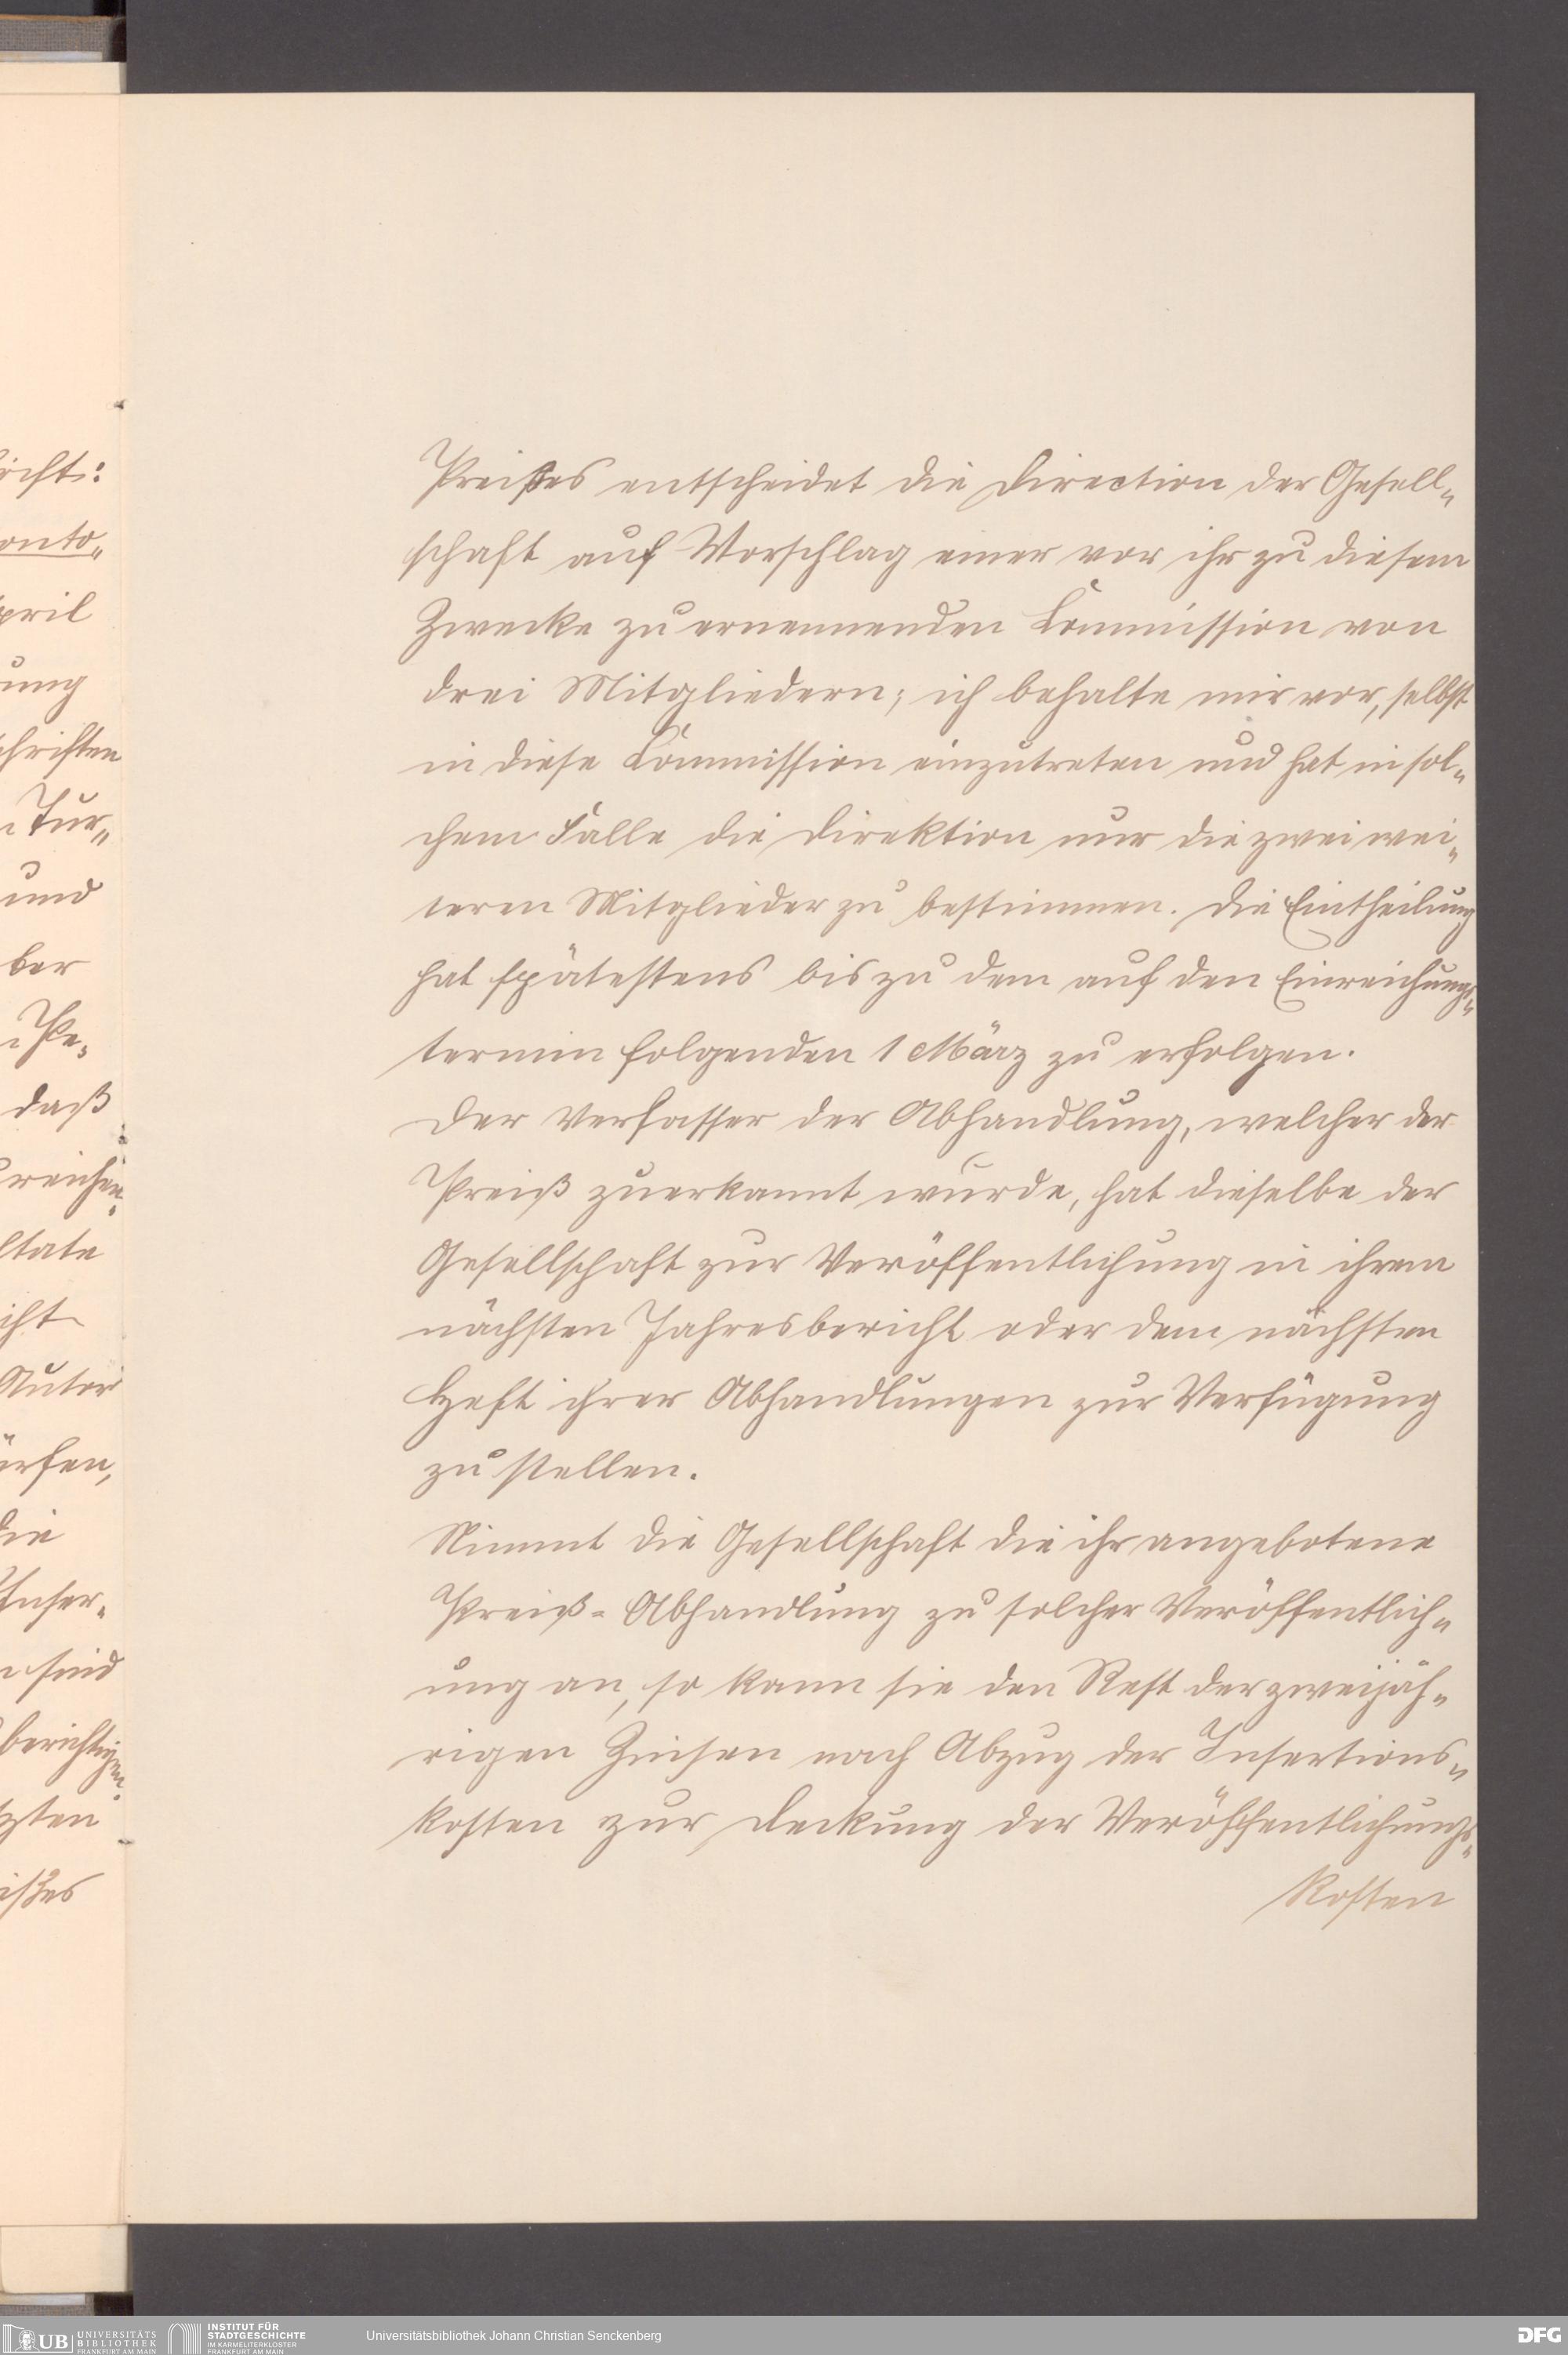 Preißes entscheidet die Direction der Gesell-
schaft auf Vorschlag einer vor ihr zu diesem
Zwecke zu ernennenden Commission von
drei Mitgliedern; ich behalte mir vor, selbst
in diese Commission einzutreten und hat in sol-
chem Falle die Direktion nur die zwei wei-
teren Mitglieder zu bestimmen. Die Eintheilung
hat spätestens bis zu dem auf den Einreichungs-
termin folgenden 1 März zu erfolgen.
Der Verfasser der Abhandlung, welcher der
Preiß zuerkannt wurde, hat dieselbe der
Gesellschaft zur Veröffentlichung in ihrem
nächsten Jahresbericht oder dem nächsten
Heft ihrer Abhandlungen zur Verfügung
zu stellen.
Nimmt die Gesellschaft die ihr angebotene
Preiß-Abhandlung zu solcher Veröffentlich-
ung an, so kann sie den Rest der zweijäh-
rigen Zinsen nach Abzug der Insertions-
kosten zur Deckung der Veröffentlichungs-
Kosten
UB UNIVERSITÄTS
BIBLIOTHEK
FRANKFURT AM MAIN
INSTITUT FÜR
STADTGESCHICHTE
IM KARMELITERKLOSTER
FRANKFURT AM MAIN
Universitätsbibliothek Johann Christian Senckenberg
DFG